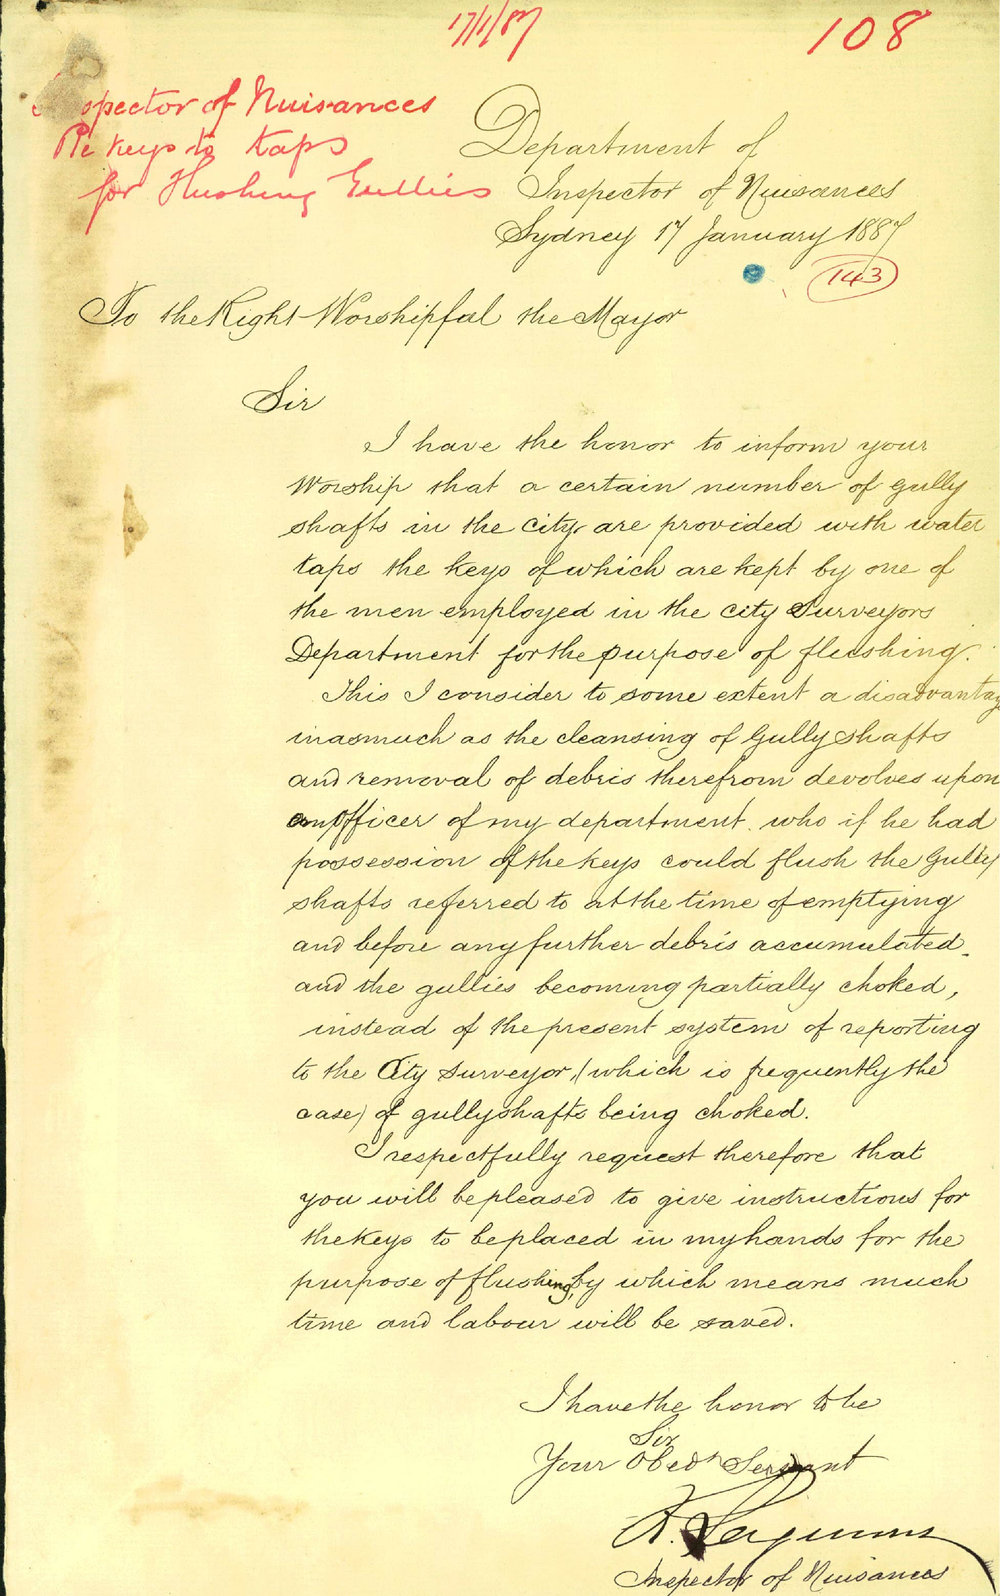 17/1/87
108
Inspector of Nuisances
Re keys to taps
for Flushing Gullies
Department of
Inspector of Nuisances
Sydney 17 January 1887
143
To the Right Worshipful the Mayor
Sir
I have the honor to inform your
Worship that a certain number of gully
shafts in the City are provided with water
taps the keys of which are kept by one of
the men employed in the City Surveyors
Department for the purpose of flushing.
This I consider to some extent a disadvantag
inasmuch as the cleansing of Gully shafts
and removal of debris therefrom devolves upon
an Officer of my department who if he had
possession of the keys could flush the Gully
shafts referred to at the time of emptying
and before any further debris accumulated
and the gullies becoming partially choked,
instead of the present system of reporting
to the City Surveyor, (which is frequently the
case) of gullyshafts being choked.
I respectfully request therefore that
you will be pleased to give instructions for
the keys to be placed in my hands for the
purpose of flushing, by which means much
time and labour will be saved.
I have the honor to be
Sir
Your Obedt Servant
Inspector of Nuisances